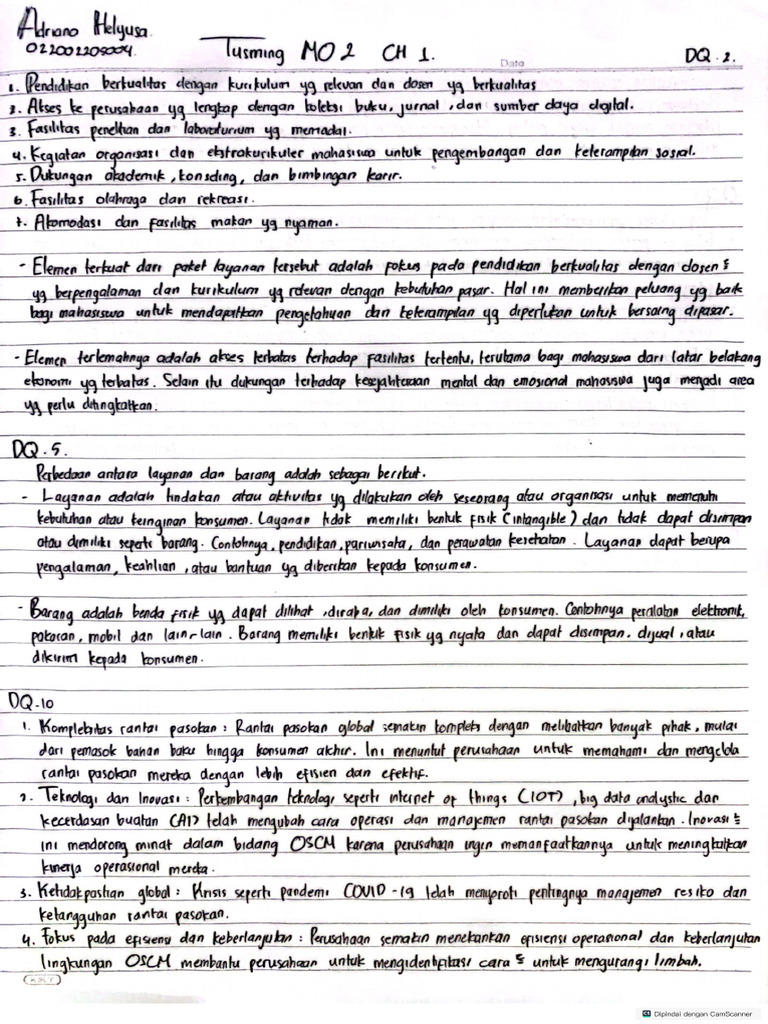 Adriano Helyusa.
022002205004.
Tusming MO 2 CH 1.
Data
DQ. 2.
1. Pendidikan berkualitas dengan kurikulum yg relevan dan dosen yg berkualitas
2. Akses ke perusahaan yg lengkap dengan koleksi buku, jurnal, dan sumber daya digital.
3. Fasilitas penelitian dan laboraturium yg memadai.
4. Kegiatan organisasi dan ekstrakurikuler mahasiswa untuk pengembangan dan keterampilan sosial.
5. Dukungan akademik, konseling, dan bimbingan karir.
6. Fasilitas olahraga dan rekreasi.
7. Akomodasi dan fasilitas makan yg nyaman.
- Elemen terkuat dari paket layanan tersebut adalah fokus pada pendidikan berkualitas dengan dosen²
yg berpengalaman dan kurikulum yg relevan dengan kebutuhan pasar. Hal ini memberikan peluang yg baik
bagi mahasiswa untuk mendapatkan pengetahuan dan keterampilan yg diperlukan untuk bersaing dipasar.
- Elemen terlemahnya adalah akses terbatas terhadap fasilitas tertentu, terutama bagi mahasiswa dari latar belakang
ekonomi yg terbatas. Selain itu dukungan terhadap kesejahteraan mental dan emosional mahasiswa juga menjadi area
yg perlu ditingkatkan.
DQ. 5.
Perbedaan antara layanan dan barang adalah sebagai berikut.
- Layanan adalah tindakan atau aktivitas yg dilakukan oleh seseorang atau organisasi untuk memenuhi
kebutuhan atau keinginan konsumen. Layanan tidak memiliki bentuk fisik (intangible) dan tidak dapat disimpan
atau dimiliki seperti barang. Contohnya, pendidikan, pariwisata, dan perawatan kesehatan. Layanan dapat berupa
pengalaman, keahlian, atau bantuan yg diberikan kepada konsumen.
- Barang adalah benda fisik yg dapat dilihat, diraba, dan dimiliki oleh konsumen. Contohnya peralatan elektronik,
pakaian, mobil dan lain-lain. Barang memiliki bentuk fisik yg nyata dan dapat disimpan, dijual, atau
dikirim kepada konsumen.
DQ-10
1. Kompleksitas rantai pasokan : Rantai pasokan global semakin kompleks dengan melibatkan banyak pihak, mulai
dari pemasok bahan baku hingga konsumen akhir. Ini menuntut perusahaan untuk memahami dan mengelola
rantai pasokan mereka dengan lebih efisien dan efektif.
2. Teknologi dan Inovasi : Perkembangan teknologi seperti internet of things (IOT), big data analystic dan
kecerdasan buatan (AI) telah mengubah cara operasi dan manajemen rantai pasokan dijalankan. Inovasi²
ini mendorong minat dalam bidang OSCM karena perusahaan ingin memanfaatkannya untuk meningkatkan
kinerja operasional mereka.
3. Ketidakpastian global : Krisis seperti pandemi COVID-19 telah menyoroti pentingnya manajemen resiko dan
ketangguhan rantai pasokan.
4. Fokus pada efisiensi dan keberlanjutan : Perusahaan semakin menekankan efisiensi operasional dan keberlanjutan
lingkungan OSCM membantu perusahaan untuk mengidentifikasi cara² untuk mengurangi limbah.
Dipindai dengan CamScanner